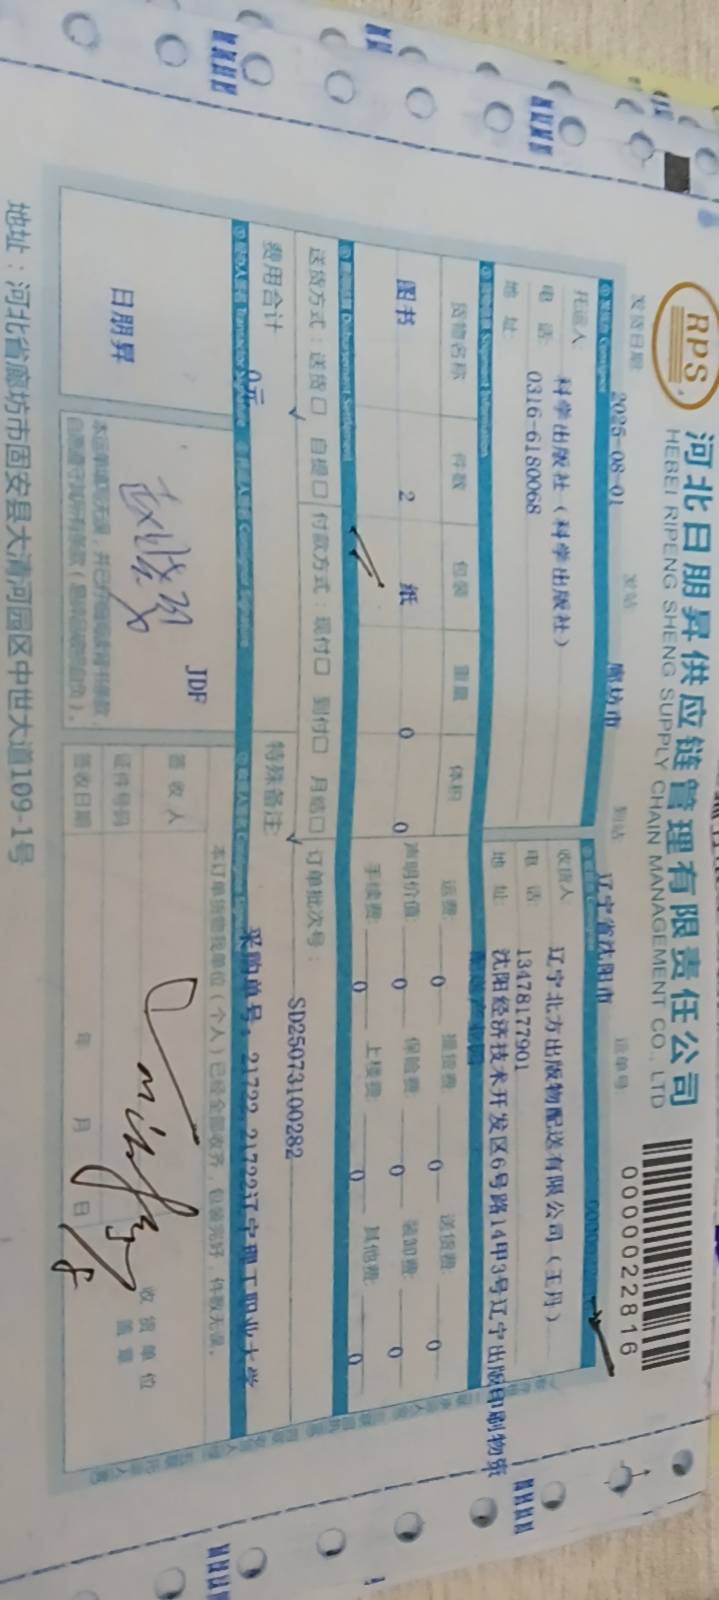 RPS
河北日朋昇供应链管理有限责任公司
HEBEI RIPENG SHENG SUPPLY CHAIN MANAGEMENT CO., LTD
0000022816
发货日期: 2025-08-01 发站: 廊坊市 到站: 辽宁省沈阳市 运单号:
托运人: 科学出版社(科学出版社)
电 话: 0316-6180068
地 址:
收货人: 辽宁北方出版物配送有限公司(王丹)
电 话: 13478177901
地 址: 沈阳经济技术开发区6号路14甲3号辽宁出版印刷物资
配送产业园
货物名称 件数 包装 重量 体积
图书 2 纸 0 0
运费: 0 提货费: 0 送货费: 0
声明价值: 0 保险费: 0 装卸费: 0
手续费: 0 上楼费: 0 其他费: 0
送货方式:送货口 自提口 付款方式:现付口 到付口 月结口 订单批次号: SD25073100282
费用合计 0元
特殊备注: 采购单号: 21722,21722辽宁理工职业大学
日朋昇
JDF
本订单货物我单位(个人)已经全部收齐,包装完好,件数无误。
签收人
证件号码
签收日期 年 月 日
收货单位
盖章
地址:河北省廊坊市固安县大清河园区中世大道109-1号